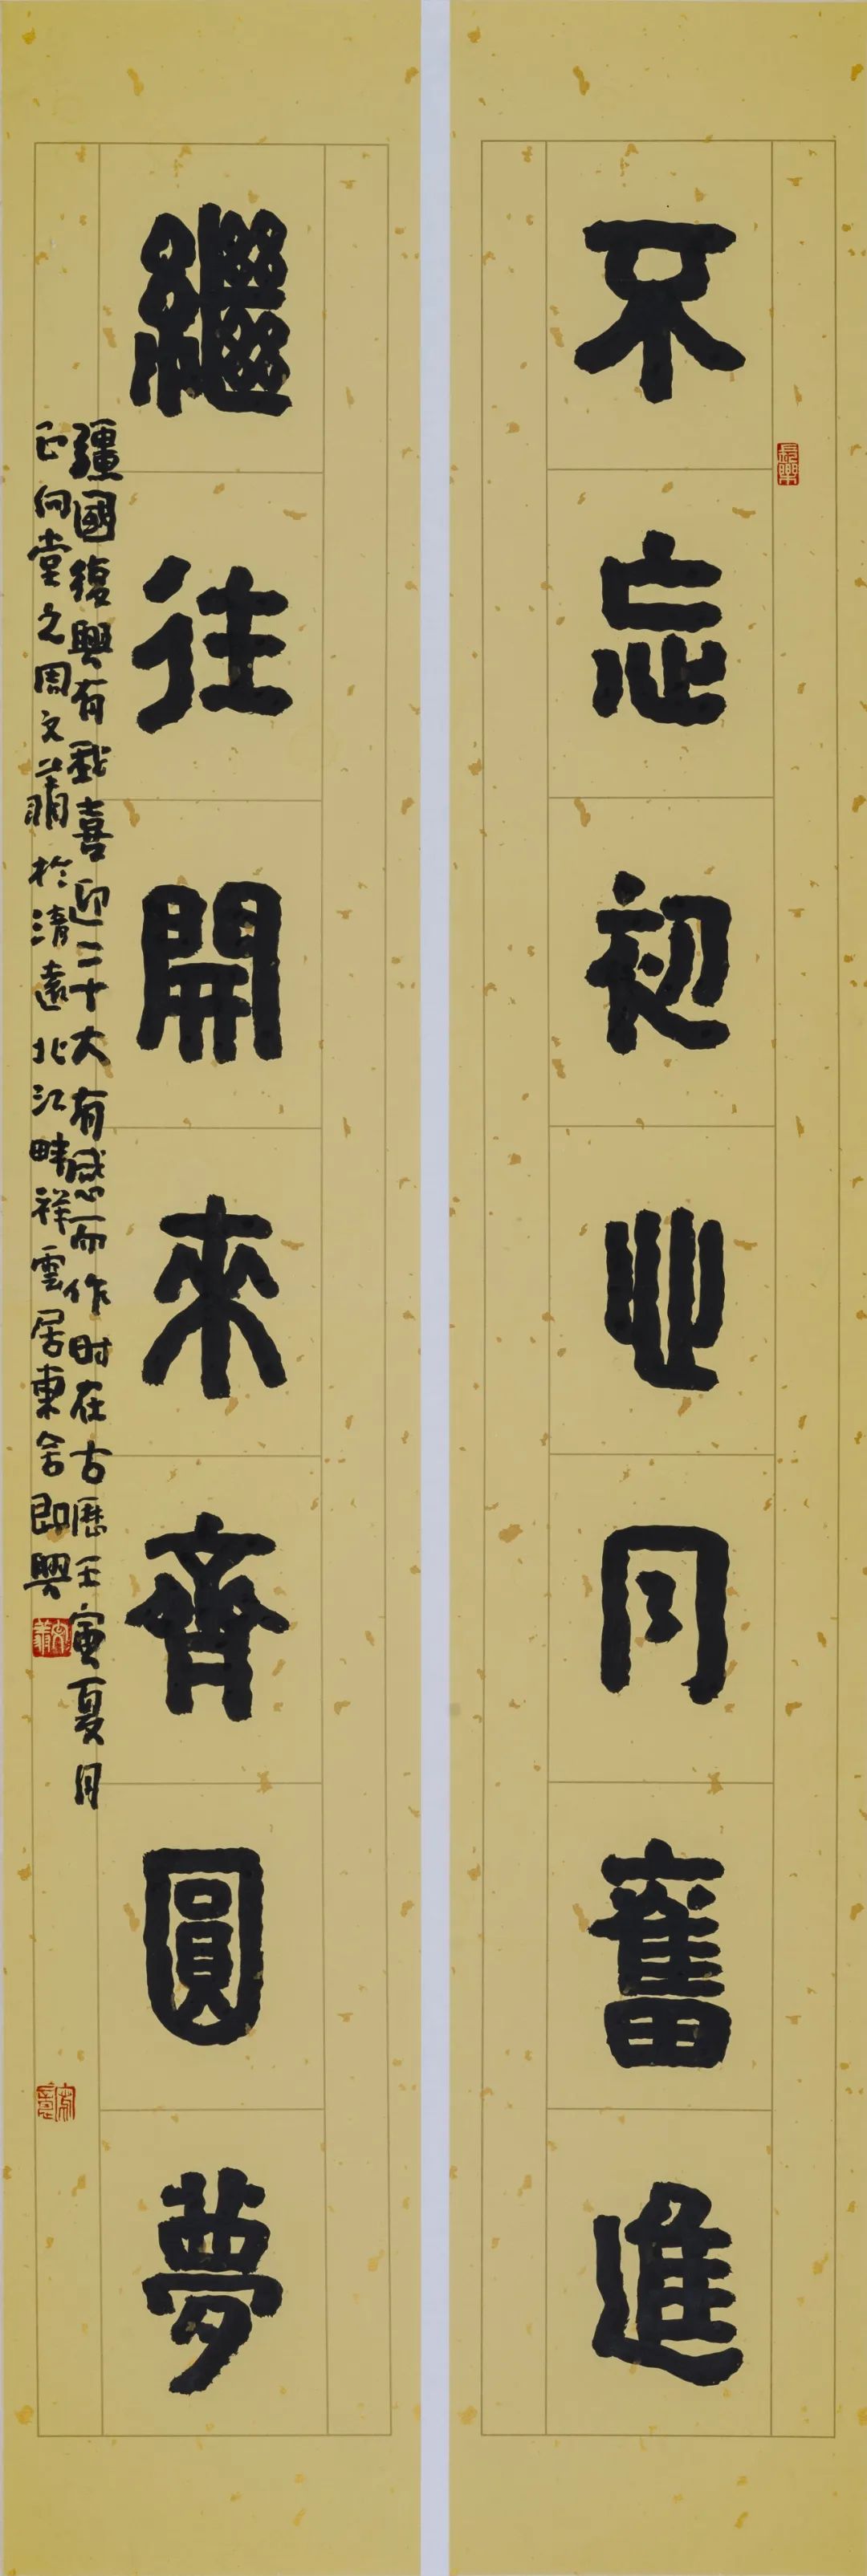 不忘初心同奮進
繼往開來齊圓夢
疆國復興有我喜迎二十大有感而作时在古歷壬寅夏月
正向堂之周文蕭於清遠北江畔祥雲居東舍即興
長樂